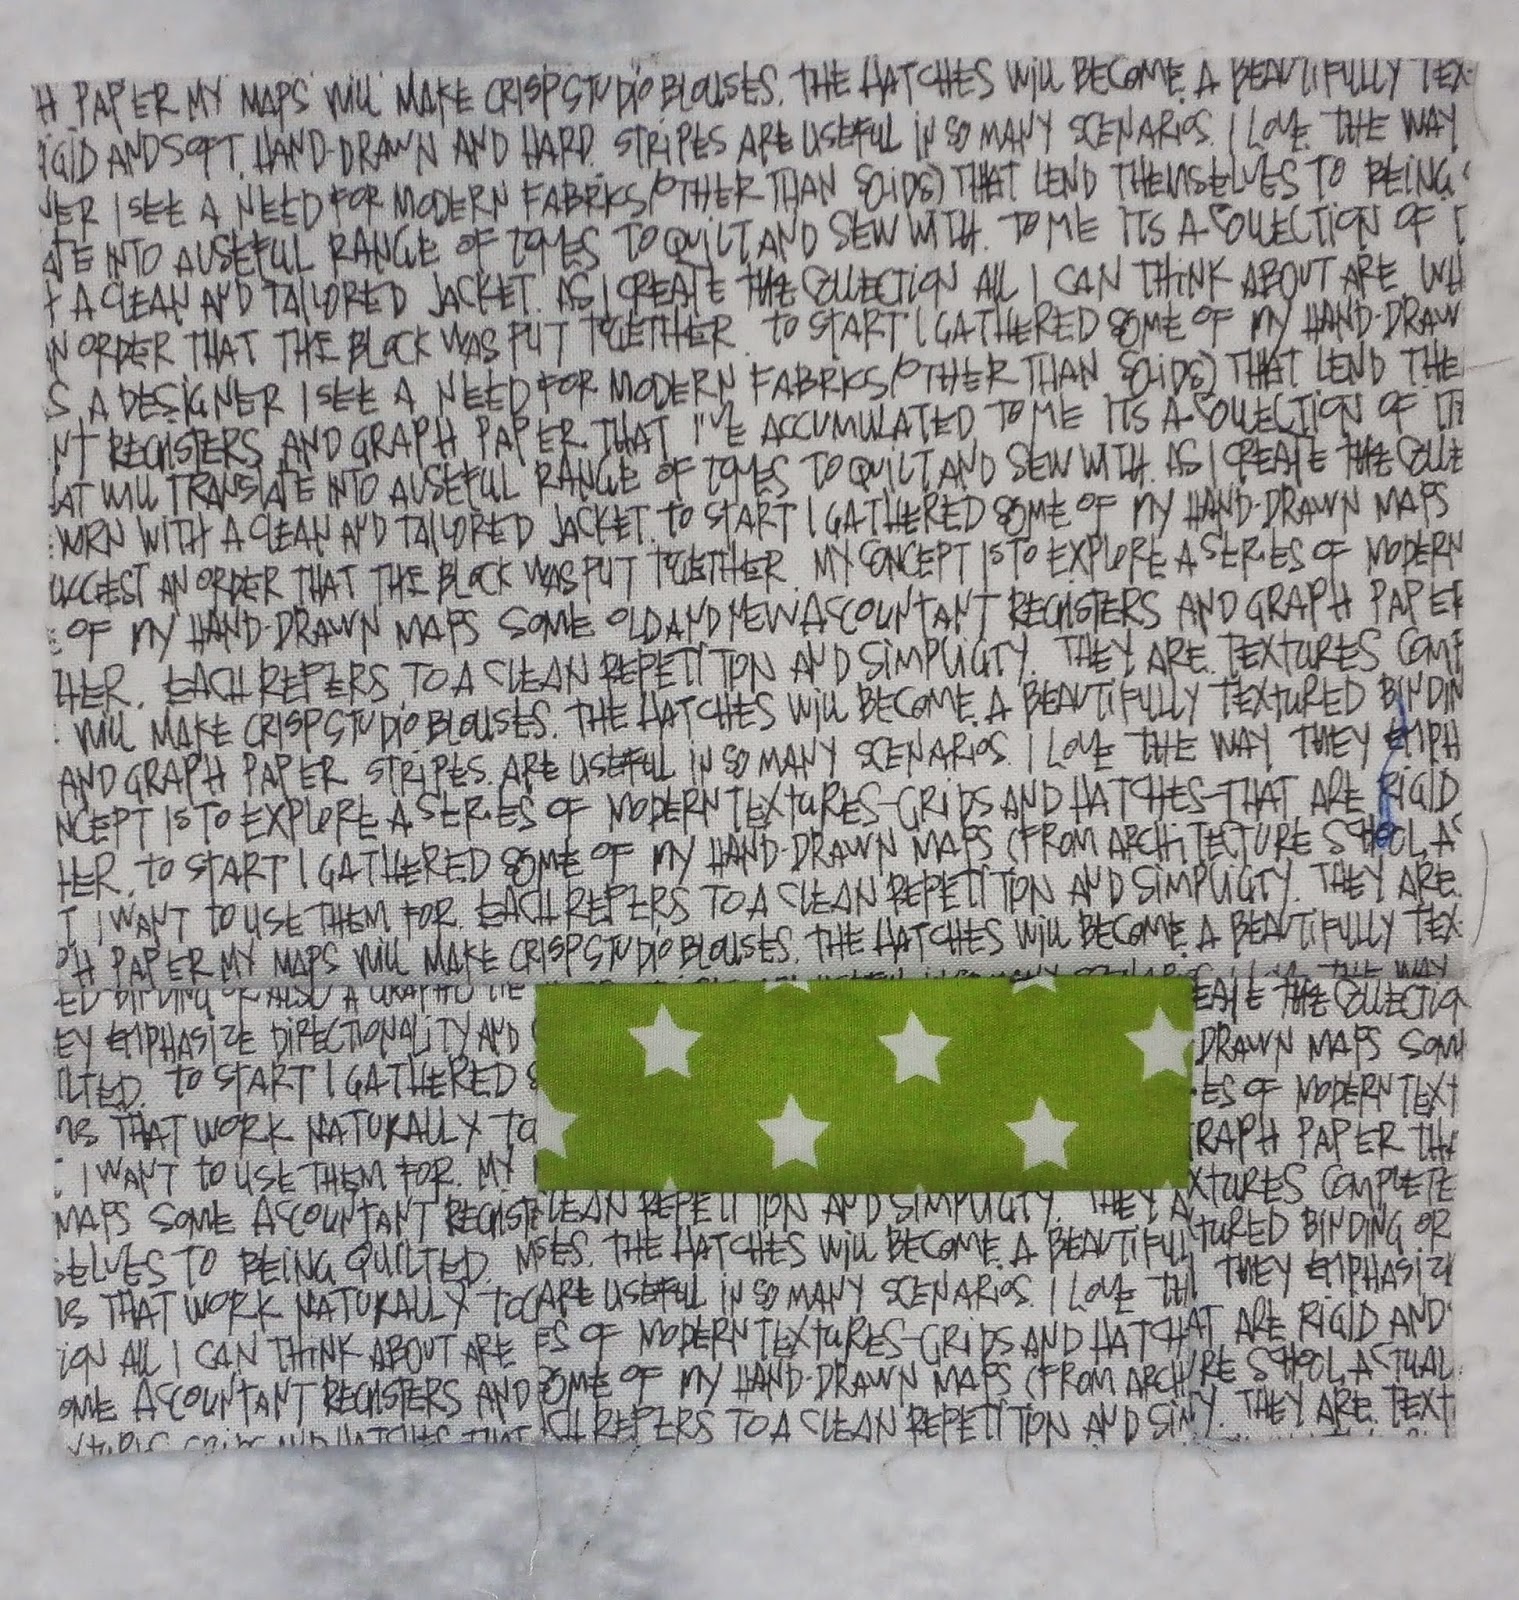 H PAPER MY MAPS WILL MAKE CRISP STUDIO BLOUSES. THE HATCHES WILL BECOME A BEAUTIFULLY TEX
RIGID AND SOFT, HAND-DRAWN AND HARD. STRIPES ARE USEFUL IN SO MANY SCENARIOS. I LOVE THE WAY
NER I SEE A NEED FOR MODERN FABRKS (OTHER THAN SOLIDS) THAT LEND THEMSELVES TO BEING
ATE INTO A USEFUL RANGE OF TONES TO QUILT AND SEW WITH. TO ME ITS A COLLECTION OF
T A CLEAN AND TAILORED JACKET. AS I CREATE THE COLLECTION ALL I CAN THINK ABOUT ARE WH
AN ORDER THAT THE BLOCK WAS PUT TOGETHER. TO START I GATHERED SOME OF MY HAND-DRAW
S. A DESIGNER I SEE A NEED FOR MODERN FABRKS (OTHER THAN SOLIDS) THAT LEND THE
NT REGISTERS AND GRAPH PAPER THAT I'VE ACCUMULATED TO ME ITS A COLLECTION OF IT
AT WILL TRANSLATE INTO A USEFUL RANGE OF TONES TO QUILT AND SEW WITH. AS I CREATE THE COLLE
WORN WITH A CLEAN AND TAILORED JACKET. TO START I GATHERED SOME OF MY HAND-DRAWN MAPS
UGGEST AN ORDER THAT THE BLOCK WAS PUT TOGETHER. MY CONCEPT IS TO EXPLORE A SERIES OF MODERN
E OF MY HAND-DRAWN MAPS SOME OLD AND NEW ACCOUNTANT REGISTERS AND GRAPH PAPER
THER. EACH REFERS TO A CLEAN REPETITION AND SIMPLICITY. THEY ARE TEXTURES COMP
WILL MAKE CRISP STUDIO BLOUSES. THE HATCHES WILL BECOME A BEAUTIFULLY TEXTURED BINDIN
AND GRAPH PAPER STRIPES ARE USEFUL IN SO MANY SCENARIOS. I LOVE THE WAY THEY EMPH
NCEPT IS TO EXPLORE A SERIES OF MODERN TEXTURES-GRIDS AND HATCHES-THAT ARE RIGID
HER. TO START I GATHERED SOME OF MY HAND-DRAWN MAPS (FROM ARCHITECTURE SCHOOL, A
T I WANT TO USE THEM FOR. EACH REFERS TO A CLEAN REPETITION AND SIMPLICITY. THEY ARE
PH PAPER MY MAPS WILL MAKE CRISP STUDIO BLOUSES. THE HATCHES WILL BECOME A BEAUTIFULLY TEX
ED BINDING OR ALSO A GRAPHIC THE COLLECTION
EY EMPHASIZE DIRECTIONALITY AND DRAWN MAPS SOM
ILTED. TO START I GATHERED ES OF MODERN TEXT
NS THAT WORK NATURALLY TO RAPH PAPER THA
I WANT TO USE THEM FOR. MY XTURES COMPLETE
MAPS SOME ACCOUNTANT REGISTE LEAN REPETITION AND SIMPLICITY. THEY A TURED BINDING OR
SELVES TO BEING QUILTED. M SES. THE HATCHES WILL BECOME A BEAUTIFULL THEY EMPHASIZ
NS THAT WORK NATURALLY TOG ARE USEFUL IN SO MANY SCENARIOS. I LOVE TH AT ARE RIGID AND
ION ALL I CAN THINK ABOUT ARE ES OF MODERN TEXTURES-GRIDS AND HATCH RE SCHOOL, ACTUAL
OME ACCOUNTANT REGISTERS AND SOME OF MY HAND-DRAWN MAPS (FROM ARCH Y. THEY ARE TEXT
XTURES GRIDS AND HATCHES THAT CH REFERS TO A CLEAN REPETITION AND SIM